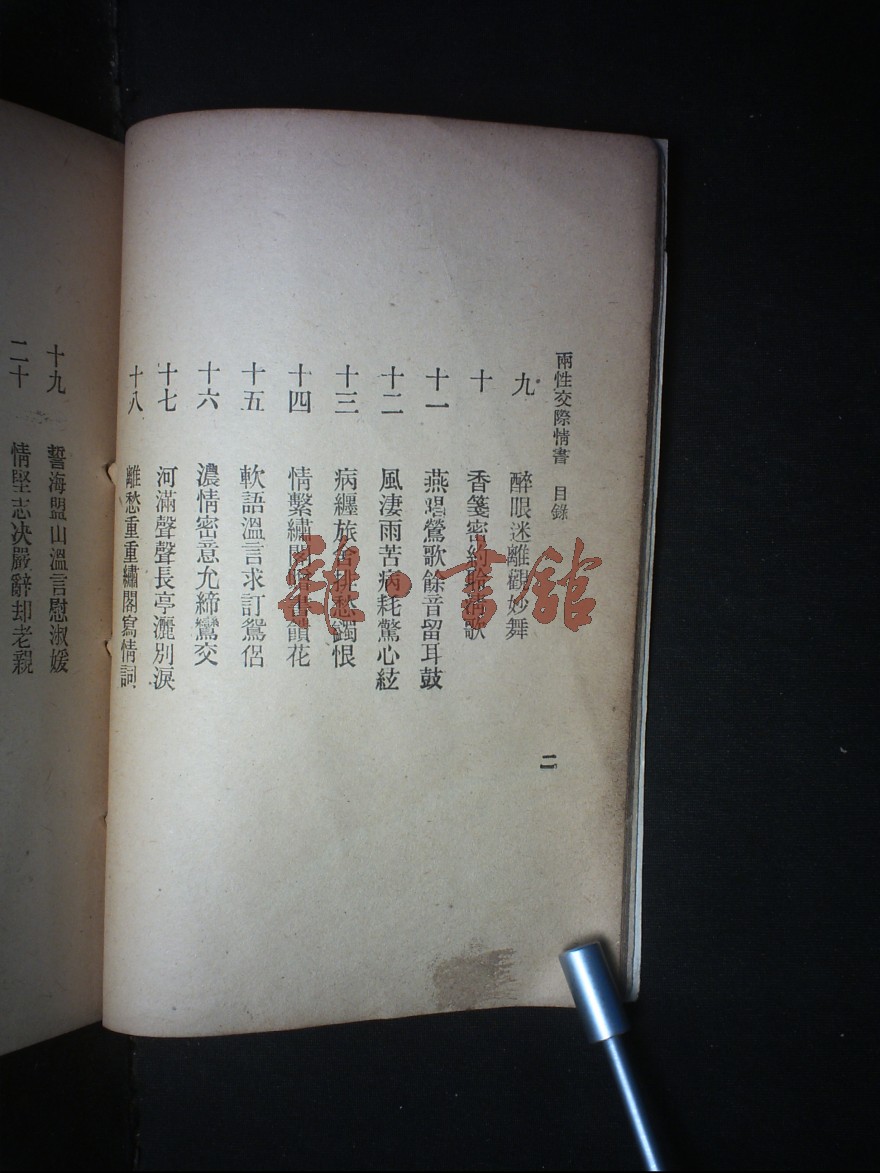 兩性交際情書 目錄
二
九 醉眼迷離觀妙舞
十 香箋密約聆清歌
十一 燕唱鶯歌餘音留耳鼓
十二 風淒雨苦病耗驚心絃
十三 病纏旅舍排愁蠲恨
十四 情繫繡閣書饋花
十五 軟語溫言求訂鴛侶
十六 濃情密意允締鸞交
十七 河滿聲聲長亭灑別淚
十八 離愁重重繡閣寫情詞
十九 誓海盟山溫言慰淑媛
二十 情堅志决嚴辭却老親
雜·書館